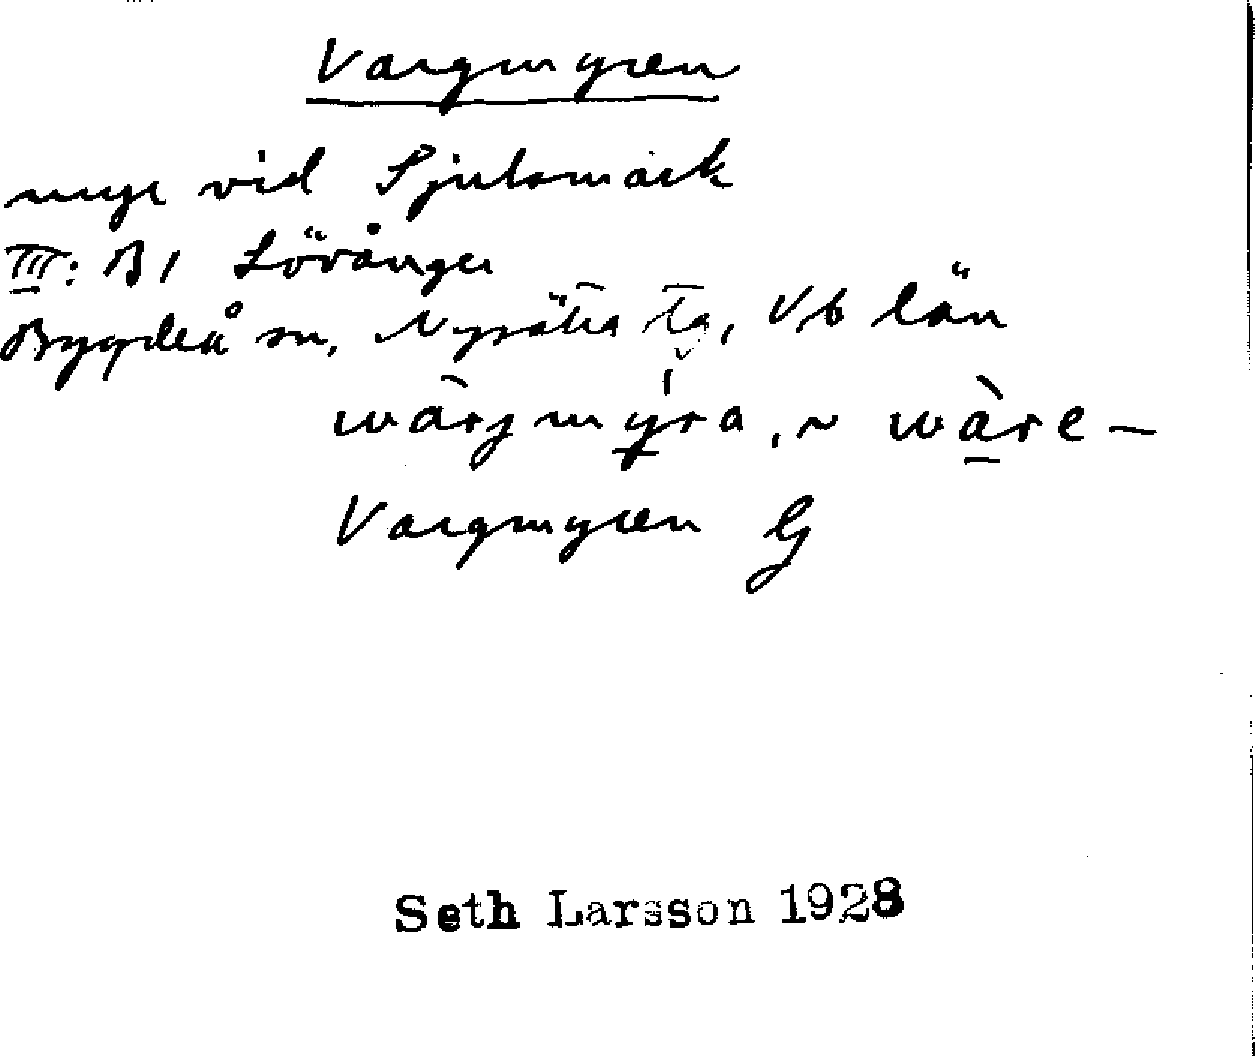 Vargmyren
myr vid Sjulsmark
III: B1 Lövånger
Bygdeå sn, Nysätra tg, Vb län
wàrgmýra, ~ wàre–
Vargmyren G
Seth Larsson 1928